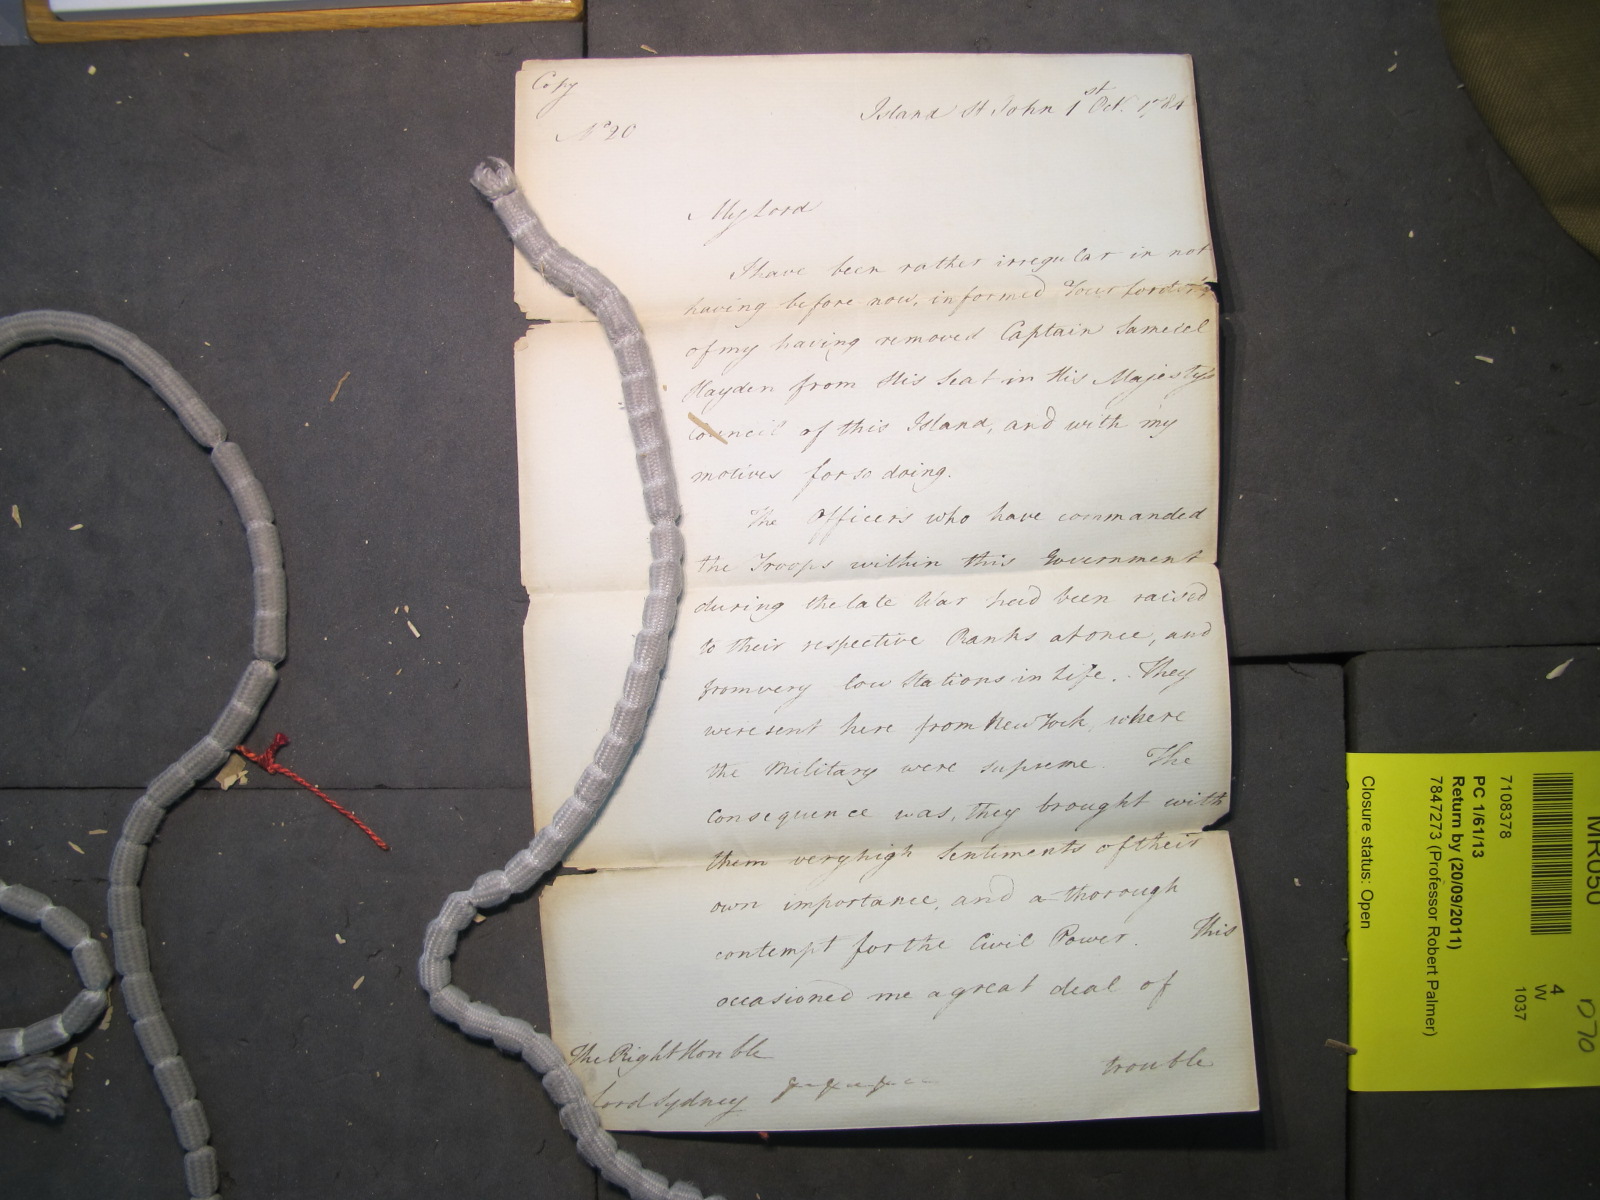 Copy
No 20
Island St John 1st Oct. 1784
My Lord
I have been rather irregular in not
having before now, informed Your Lordship
of my having removed Captain Samuel
Hayden from His Seat in His Majesty's
Council of this Island, and with my
motives for so doing.
The Officers who have commanded
the Troops within this Government
during the late War had been raised
to their respective Ranks at once, and
from very low Stations in Life. They
were sent here from New York, where
the Military were supreme. The
consequence was, they brought with
them very high Sentiments of their
own importance, and a thorough
contempt for the Civil Power. This
occasioned me a great deal of
trouble
The Right Honble
Lord Sydney
MR050
7108378
4
W
1037
PC 1/61/13
Return by (20/09/2011)
7847273 (Professor Robert Palmer)
Closure status: Open